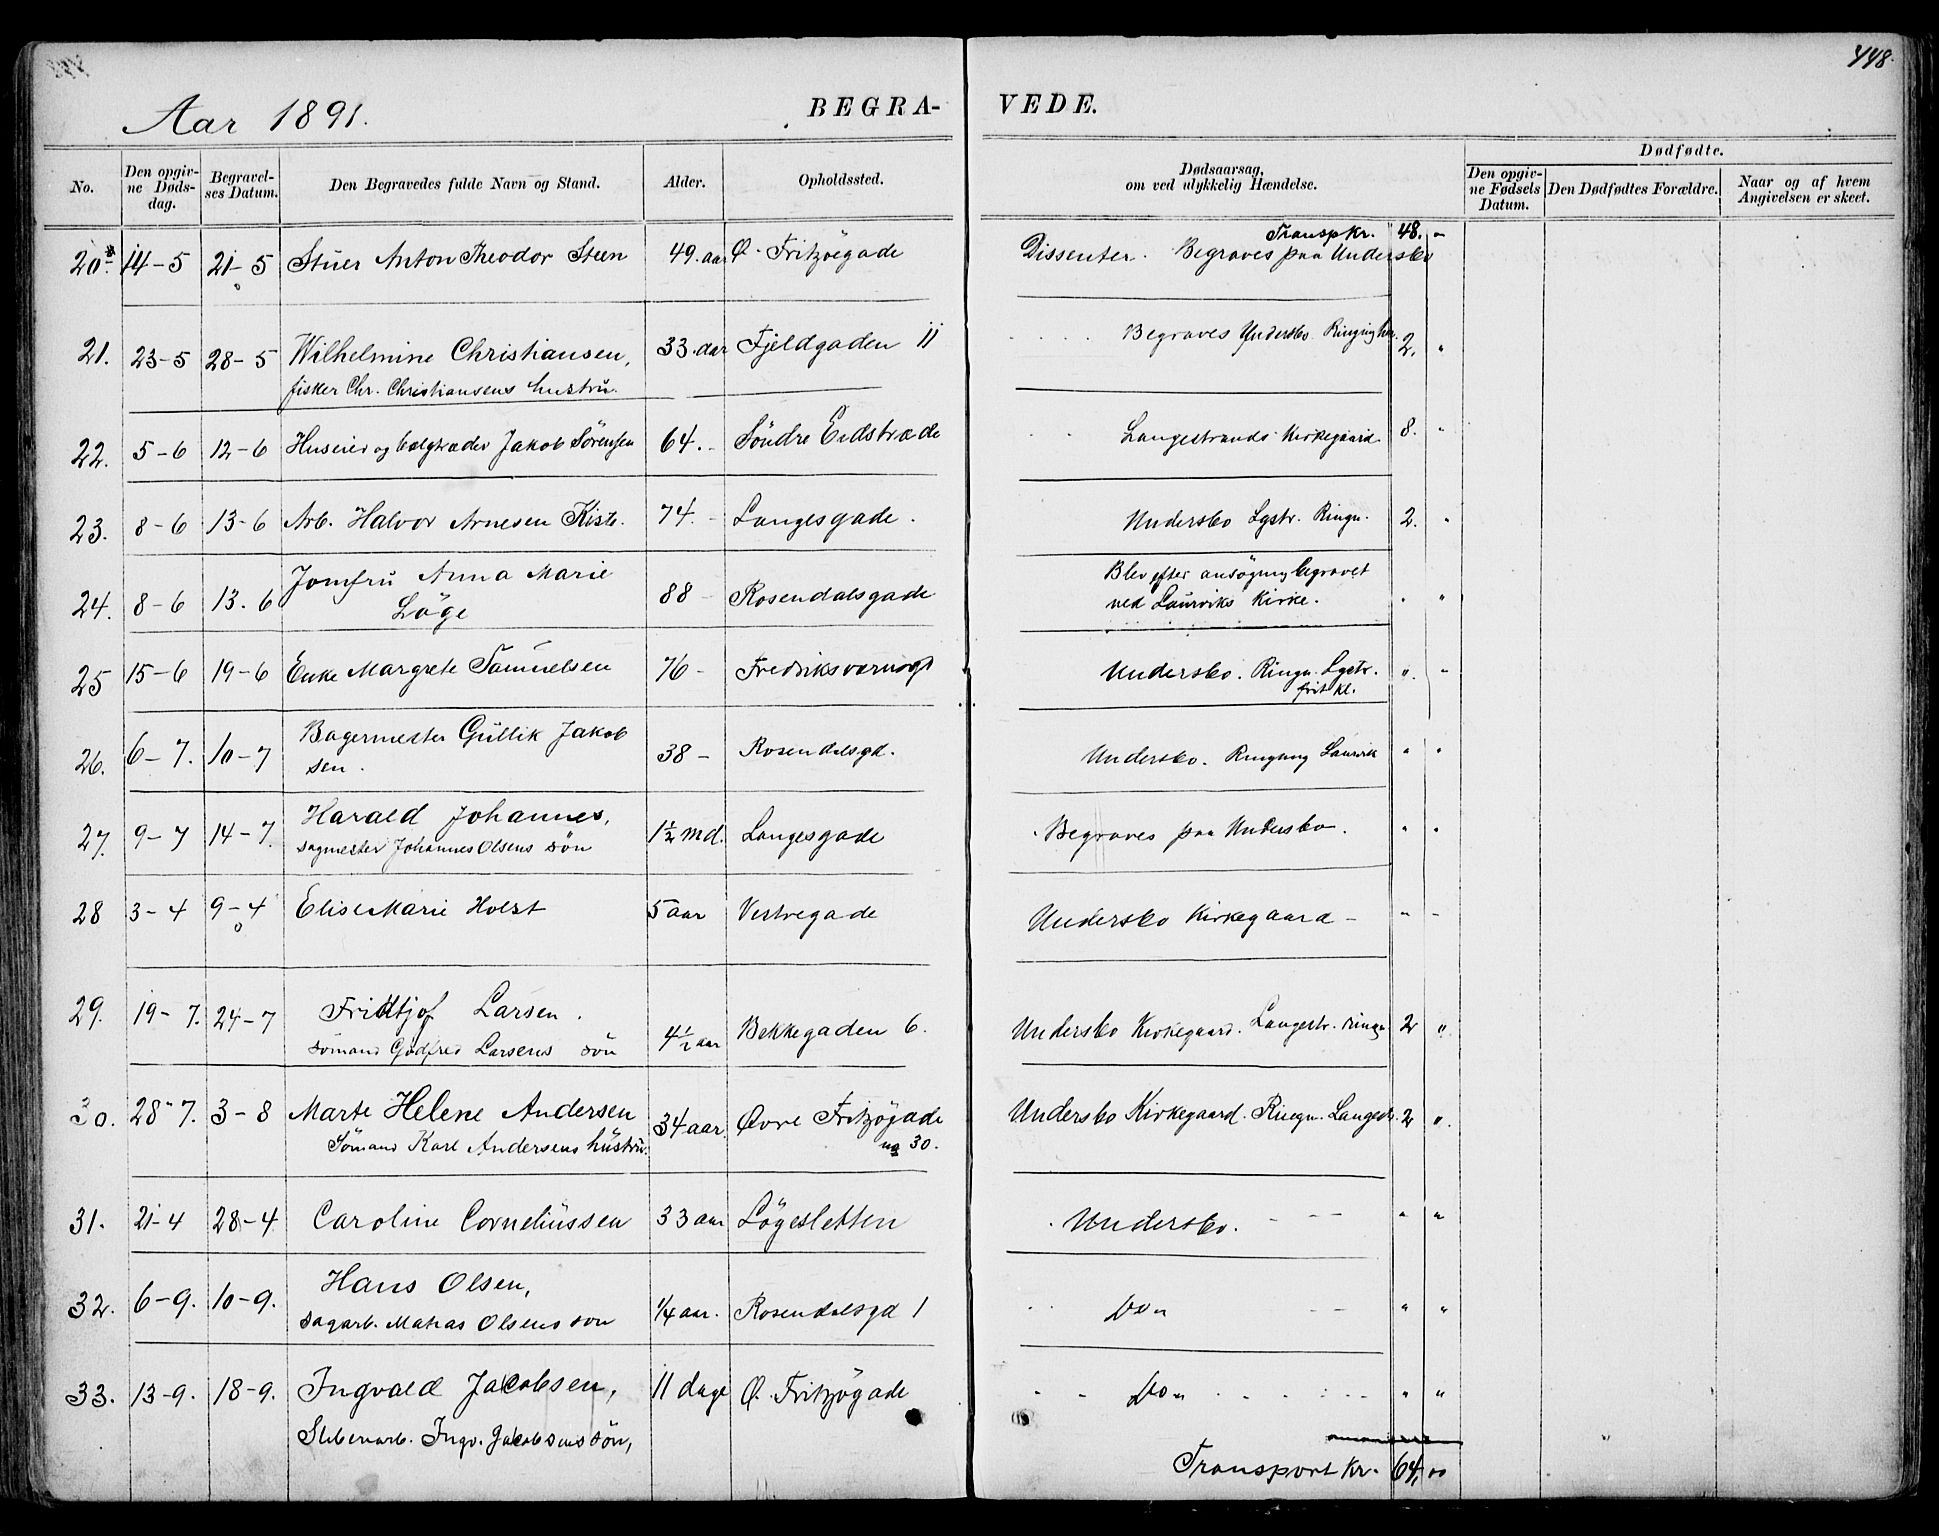 448.
Aar 1891.
BEGRA-
VEDE.
No.
Den opgiv-
ne Døds-
dag.
Begravel-
ses Datum.
Den Begravedes fulde Navn og Stand.
Alder.
Opholdssted.
Dødsaarsag,
om ved ulykkelig Hændelse.
Dødfødte.
Den opgiv-
ne Fødsels
Datum.
Den Dødfødtes Forældre.
Naar og af hvem
Angivelsen er skeet.
Transp kr. 48. -
20. 14-5 21-5 Stuer Anton Theodor Steen 49. aar Ø. Fritzöegade Dissenter. Begraves paa Undersbo
21. 23-5 28-5 Wilhelmine Christiansen, 33. aar Fjeldgaden 11 Begraves Undersbo 2. "
fisker Chr. Christiansens hustrü.
22. 5-6 12-6 Huseier og Jakob Sörensen 64. - Söndre Eidstræde Langestrands Kirkegaard 8. "
23. 8-6 13-6 Arb. Halvor Arnesen 74. - Langesgade. Undersbo Lgstr. Ringn. 2. "
24. 8-6 13. 6 Jomfrü Anna Marie 88 - Rosendalsgade Blev efter ansögning begravet
Löge ved Laurviks Kirke. " "
25 15-6 19-6 Enke Margrete Samuelsen 76 - Fredriksværnsgt Undersbo. Ringn. Lgstr. " "
frit kl.
26. 6-7. 10-7 Bagermester Güllik Jakob 38 - Rosendalsgd. Undersbo. Ringning Laurvik " "
sen.
27. 9-7 14-7. Harald Johannes, 1½ md. Langesgade Begraves paa Undersbo. " "
sagmester Johannes Olsens sön
28 3-4 9-4 Elise Marie Holst 5 aar Vestregade Undersbo Kirkegaard - " -
29. 19-7. 24-7 Fridtjof Larsen. 4½ aar Bekkegaden 6. Undersbo Kirkegaard. Langestr. Ringn 2 "
sömand Godfred Larsens sön
30. 28-7. 3-8 Marte Helene Andersen 34 aar. Øvre Fritzögade Undersbo Kirkegaard. Ringn. Langestr. 2 "
Sömand Karl Andersens hüstrü. no 30.
31. 21-4 28-4. Caroline Corneliüssen 33 aar Lögesletten Undersbo. " "
32. 6-9. 10-9. Hans Olsen, ¼ aar. Rosendalsgd 1 Do " "
sagarb. Matias Olsens sön
33. 13-9. 18-9. Ingvald Jacobsen, 11 dage Ø. Fritzögade Do " "
Sliberiarb. Ingv. Jacobsens sön,
Transport Kr. 64,00